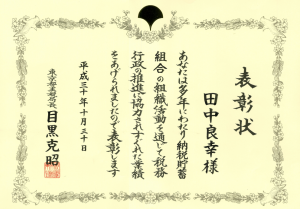 表彰状
田中良幸様
あなたは多年にわたり納税貯蓄
組合の組織活動を通じて税務
行政の推進に協力されすぐれた業績
をあげられましたので表彰します
平成三十年十月三十日
東京都主税局長
目黒克昭